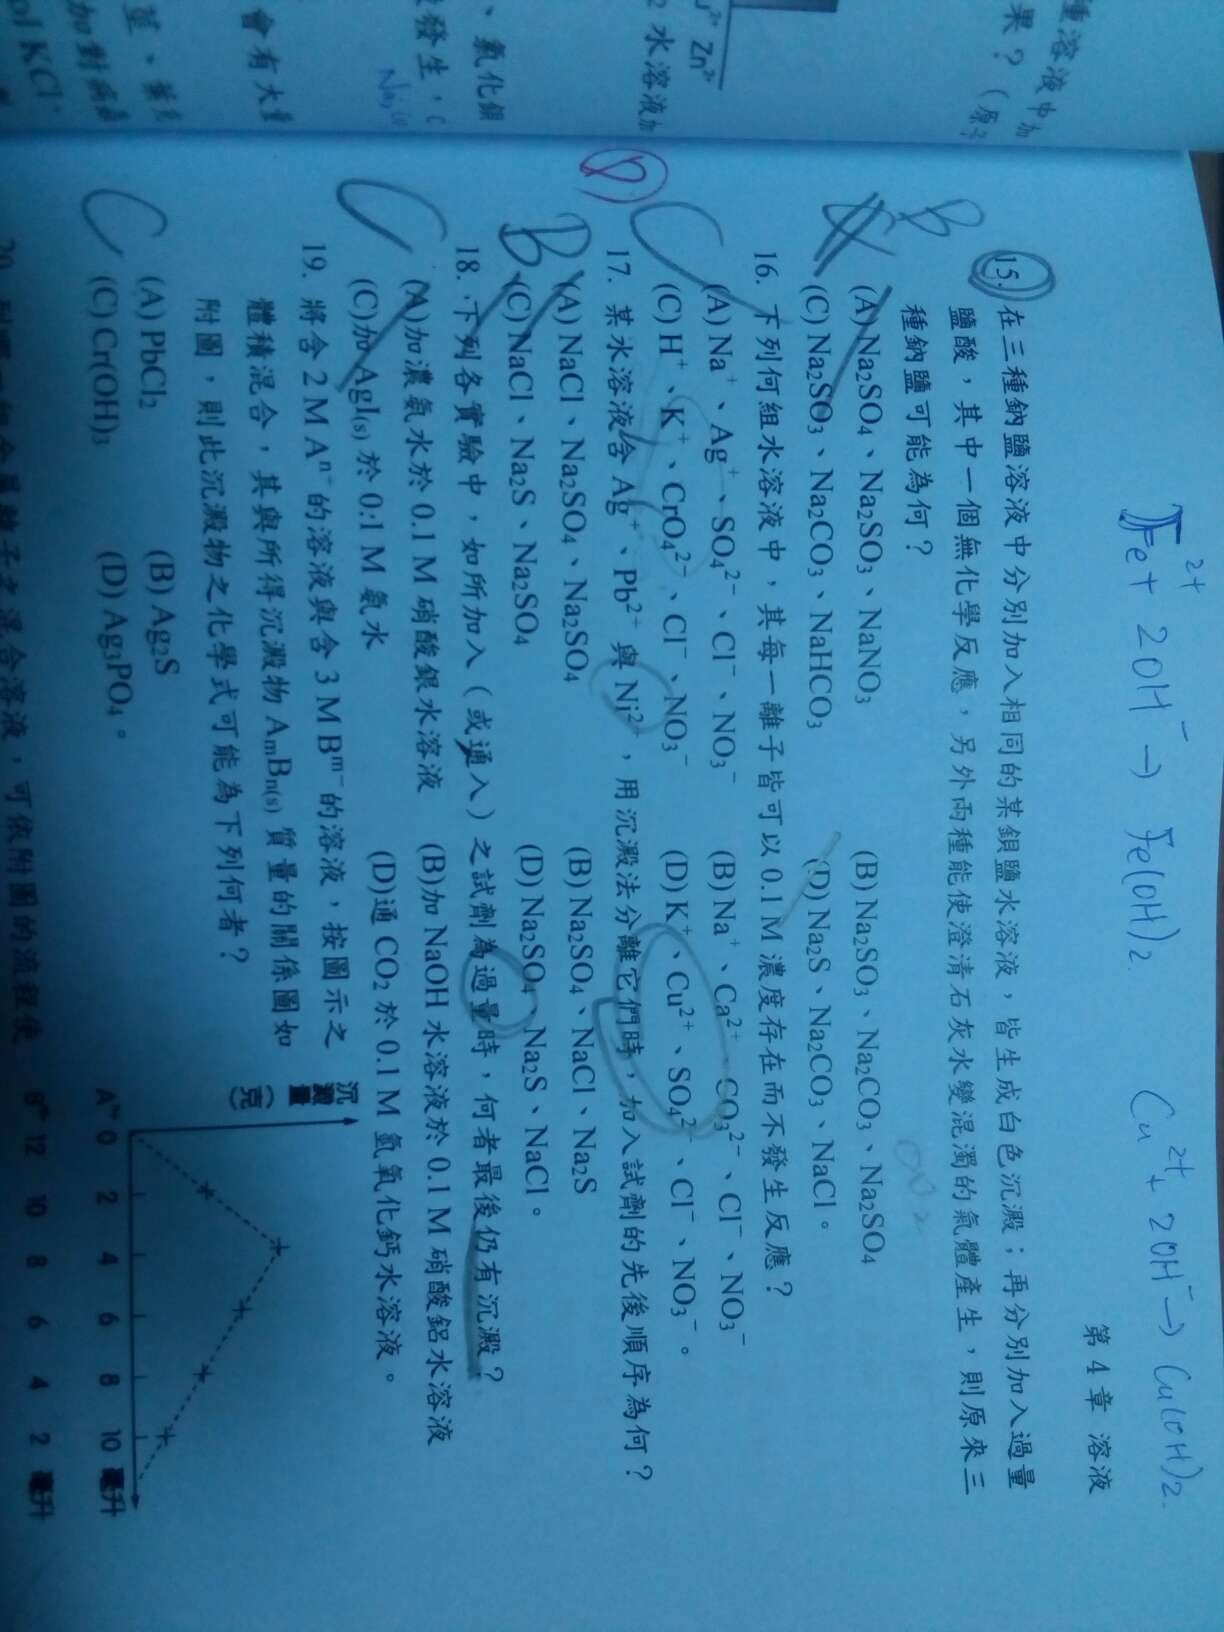 Fe²⁺ + 2OH⁻ → Fe(OH)₂.
Cu²⁺ + 2OH⁻ → Cu(OH)₂.
第 4 章 溶液
B
15. 在三種鈉鹽溶液中分別加入相同的某鋇鹽水溶液，皆生成白色沉澱；再分別加入過量
鹽酸，其中一個無化學反應，另外兩種能使澄清石灰水變混濁的氣體產生，則原來三
種鈉鹽可能為何？
(A) Na₂SO₄、Na₂SO₃、NaNO₃
(B) Na₂SO₃、Na₂CO₃、Na₂SO₄
(C) Na₂SO₃、Na₂CO₃、NaHCO₃
(D) Na₂S、Na₂CO₃、NaCl。
16. 下列何組水溶液中，其每一離子皆可以 0.1 M 濃度存在而不發生反應？
(A) Na⁺、Ag⁺、SO₄²⁻、Cl⁻、NO₃⁻
(B) Na⁺、Ca²⁺、CO₃²⁻、Cl⁻、NO₃⁻
(C) H⁺、K⁺、CrO₄²⁻、Cl⁻、NO₃⁻
(D) K⁺、Cu²⁺、SO₄²⁻、Cl⁻、NO₃⁻。
C
D
17. 某水溶液含 Ag⁺、Pb²⁺ 與 Ni²⁺，用沉澱法分離它們時，加入試劑的先後順序為何？
(A) NaCl、Na₂SO₄、Na₂SO₄
(B) Na₂SO₄、NaCl、Na₂S
(C) NaCl、Na₂S、Na₂SO₄
(D) Na₂SO₄、Na₂S、NaCl。
B
18. 下列各實驗中，如所加入（或通入）之試劑為過量時，何者最後仍有沉澱？
(A)加濃氨水於 0.1 M 硝酸銀水溶液
(B)加 NaOH 水溶液於 0.1 M 硝酸鋁水溶液
(C)加 AgI(s) 於 0.1 M 氨水
(D)通 CO₂ 於 0.1 M 氫氧化鈣水溶液。
C
19. 將含 2 M Aⁿ⁻的溶液與含 3 M Bᵐ⁻的溶液，按圖示之
體積混合，其與所得沉澱物 AmBn(s) 質量的關係圖如
附圖，則此沉澱物之化學式可能為下列何者？
C
(A) PbCl₂
(B) Ag₂S
(C) Cr(OH)₃
(D) Ag₃PO₄。
沉澱量(克)
0 2 4 6 8 10 毫升
12 10 8 6 4 2 毫升
種溶液中加
果？（原子
Zn²⁺
2 水溶液加
、氯化鋇
發生，
會有大量
ol KCl、